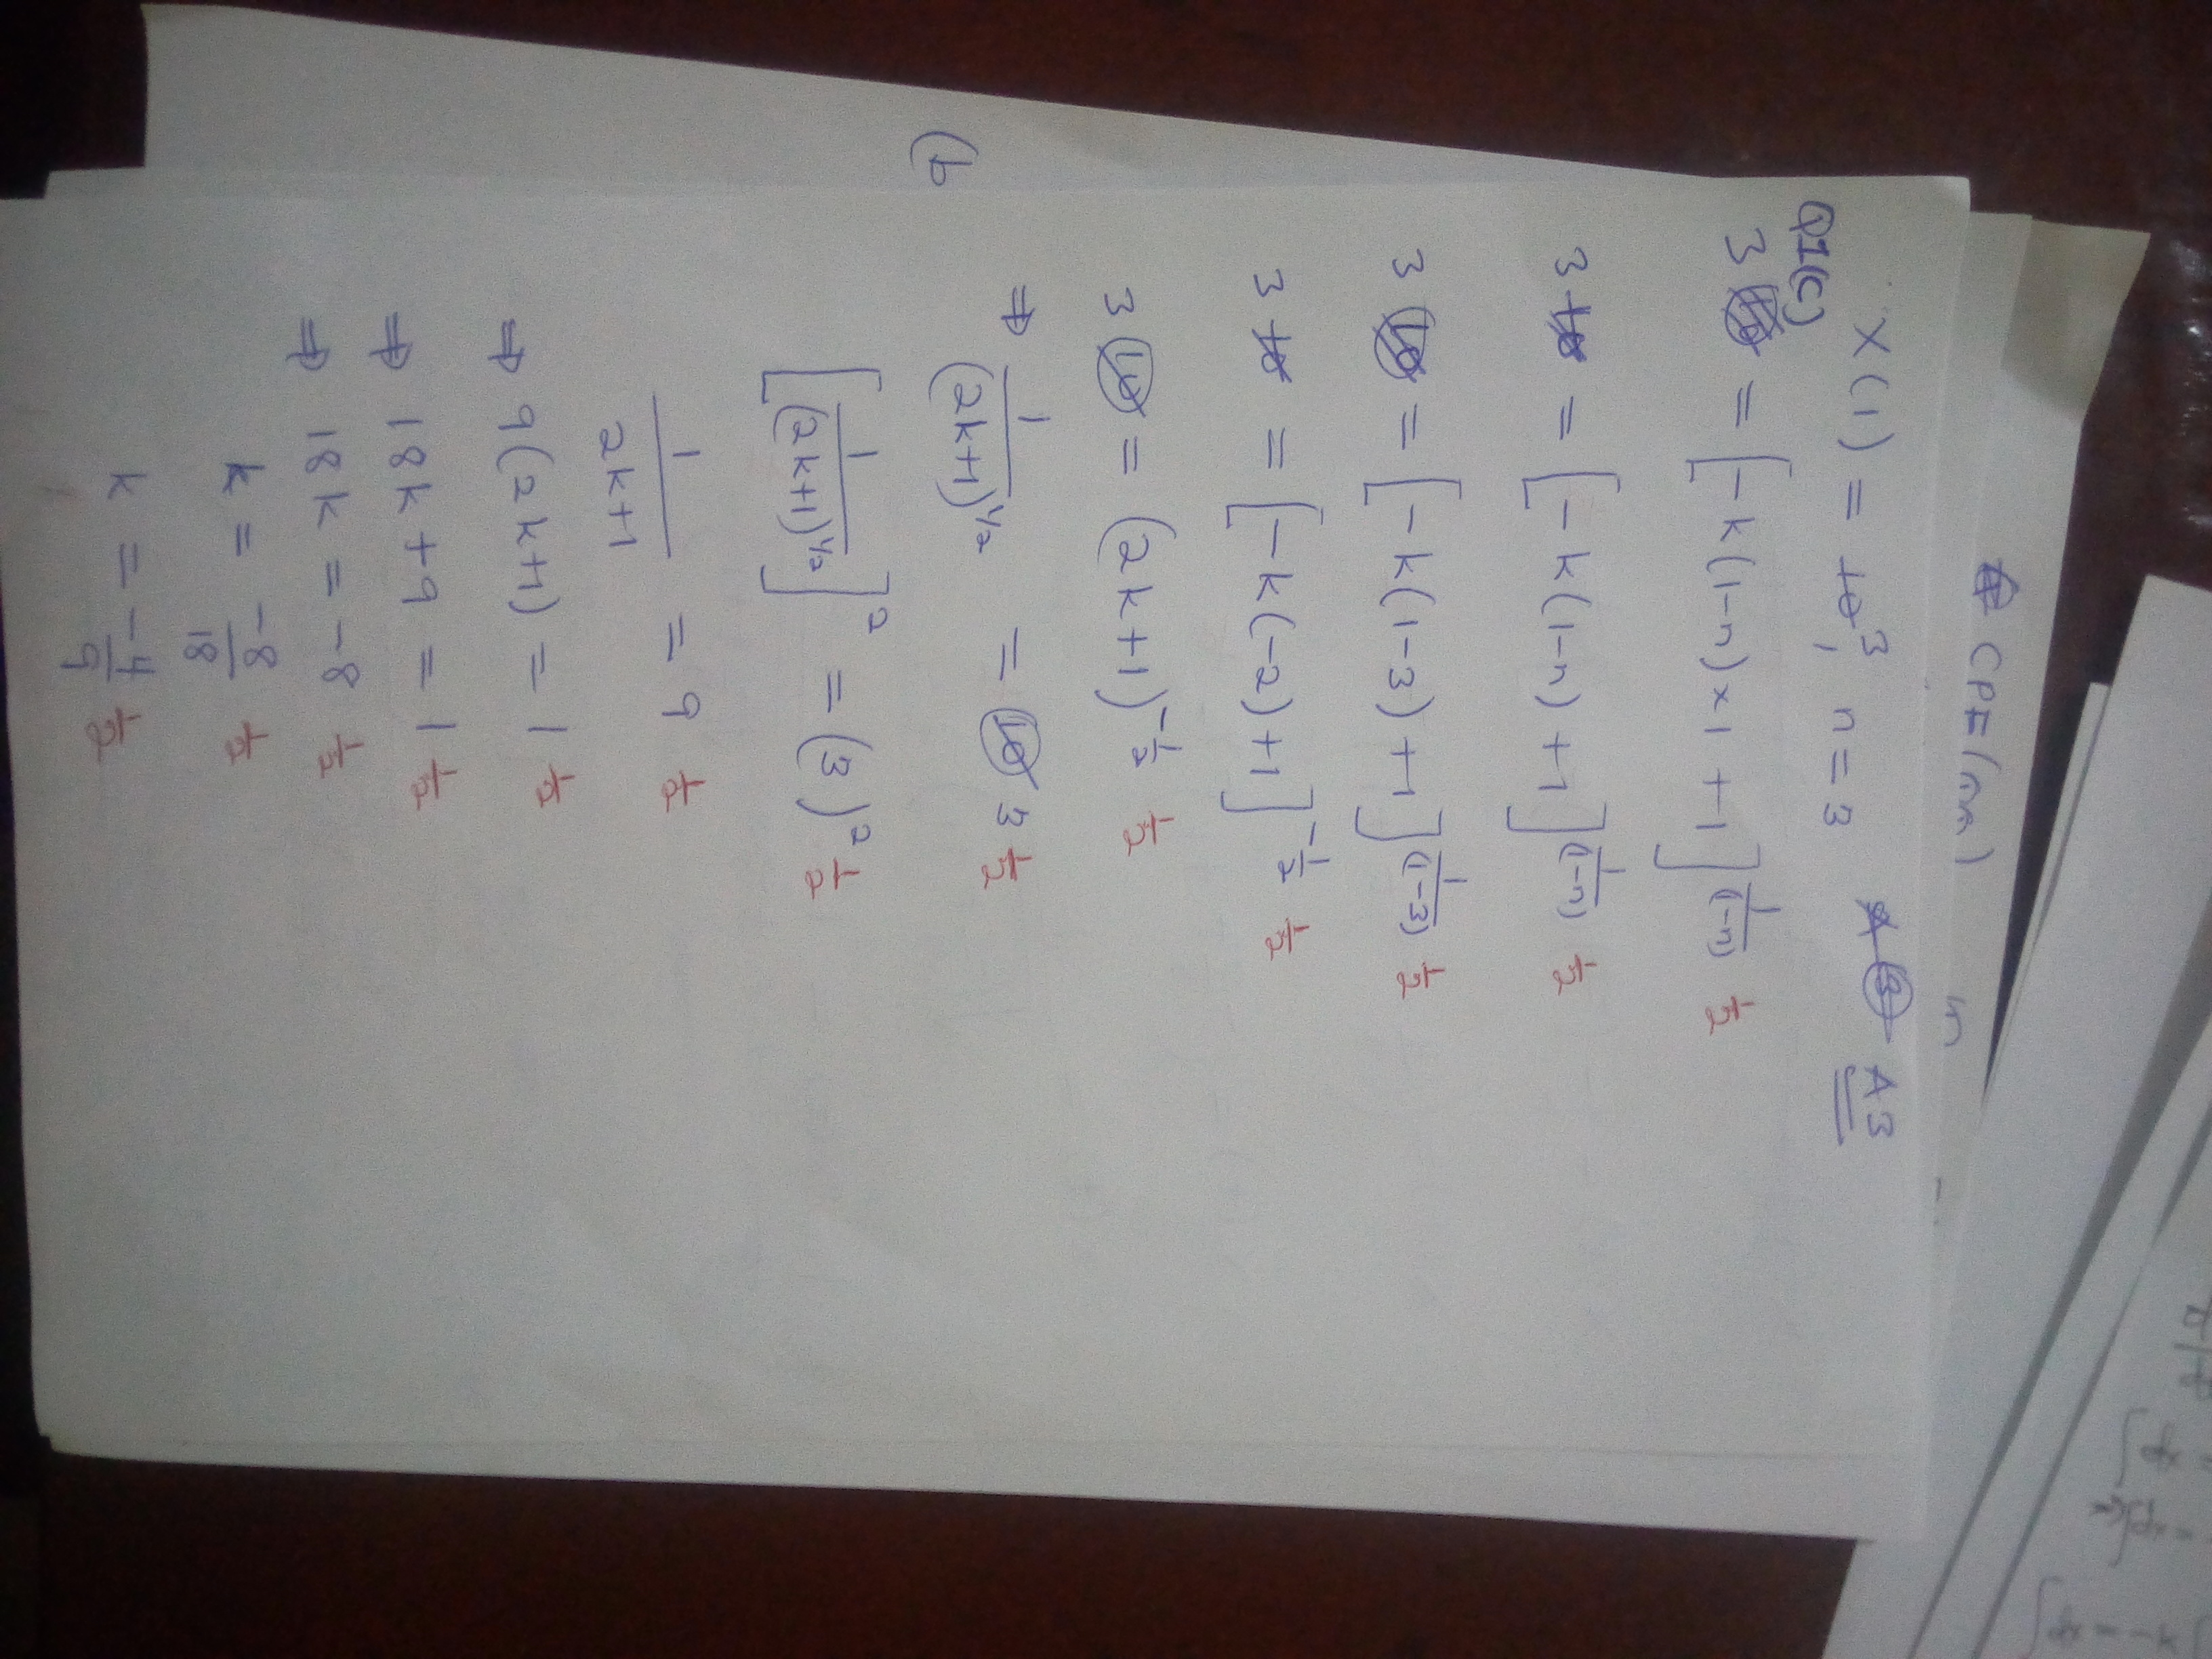 CPE
X(1) = 1̶0̶ 3, n = 3 A3
Q1(C)
3 = [-k(1-n)x1 +1]^(1/(1-n)) ½
3 = [-k(1-n)+1]^(1/(1-n)) ½
3 = [-k(1-3)+1]^(1/(1-3)) ½
3 = [-k(-2)+1]^(-½) ½
3 = (2k+1)^(-½) ½
⇒ 1/(2k+1)^(1/2) = 3 ½
(b
[1/(2k+1)^(1/2)]^2 = (3)^2 ½
1/(2k+1) = 9 ½
⇒ 9(2k+1) = 1 ½
⇒ 18k+9 = 1 ½
⇒ 18k = -8 ½
k = -8/18 ½
k = -4/9 ½